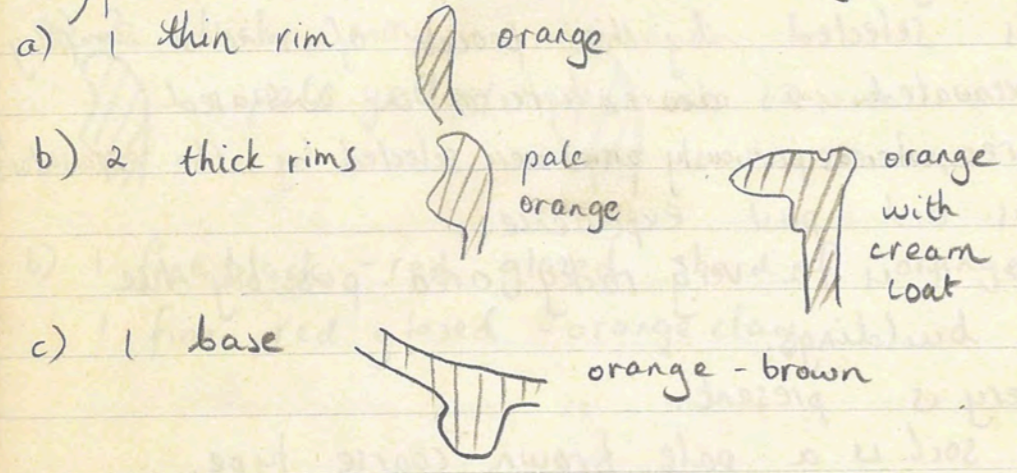 a) 1 thin rim orange
b) 2 thick rims pale orange orange with cream coat
c) 1 base orange - brown